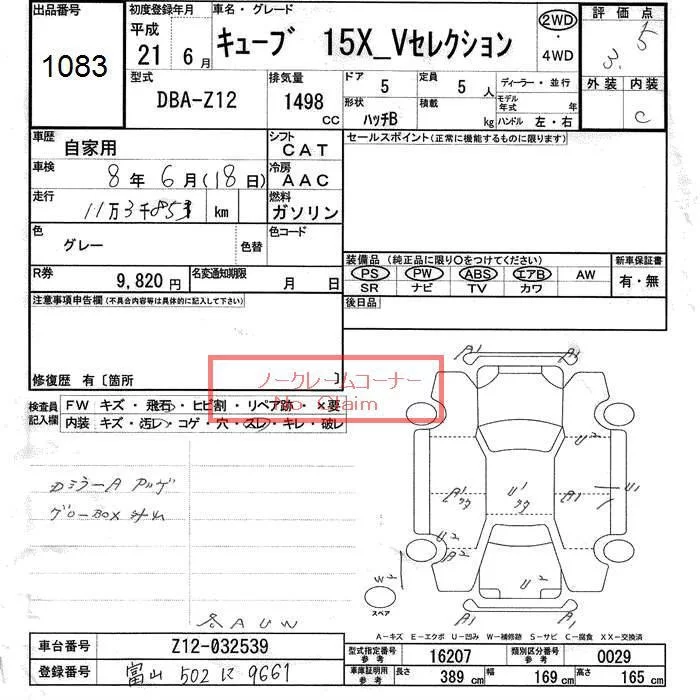 出品番号 初度登録年月 車名・グレード 評価点
1083 平成 21 6月 キューブ 15X_Vセレクション 2WD ・ 4WD 3.5
型式 排気量 ドア 5 定員 5人 ディーラー・並行 外装 内装
DBA-Z12 1498 CC 形状 ハッチB 積載 kg モデル年式 年 C
ハンドル 左・右
車歴 自家用 シフト CAT セールスポイント(正常に機能するものに限ります)
車検 8年6月(18日) 冷房 AAC
走行 11万3千853 km 燃料 ガソリン
色 グレー 色替 色コード
装備品(純正品に限り○をつけてください) 新車保証書
R券 9,820円 名変通知期限 月 日 PS PW ABS エアB AW 有・無
SR ナビ TV カワ
注意事項申告欄(不具合内容等は具体的に記入して下さい) 後日品
修復歴 有〔箇所 〕
ノークレームコーナー
No Claim
検査員記入欄 FW キズ・飛石・ヒビ割・リペア跡・×要
内装 キズ・汚レ・コゲ・穴・スレ・キレ・破レ
A1 A1
U2
DミラーA アッゲ
A1 クク U1 クク A1 U1
グローBOX
U2 U2
W2
スペア
A1 A1
各AUW
A-キズ E-エクボ U-凹み W-補修跡 S-サビ C-腐食 XX-交換済
車台番号 Z12-032539 型式指定番号 参考 16207 類別区分番号 参考 0029
登録番号 富山 502 に 9661 車庫証明用 参考 長さ 389 cm 幅 169 cm 高さ 165 cm